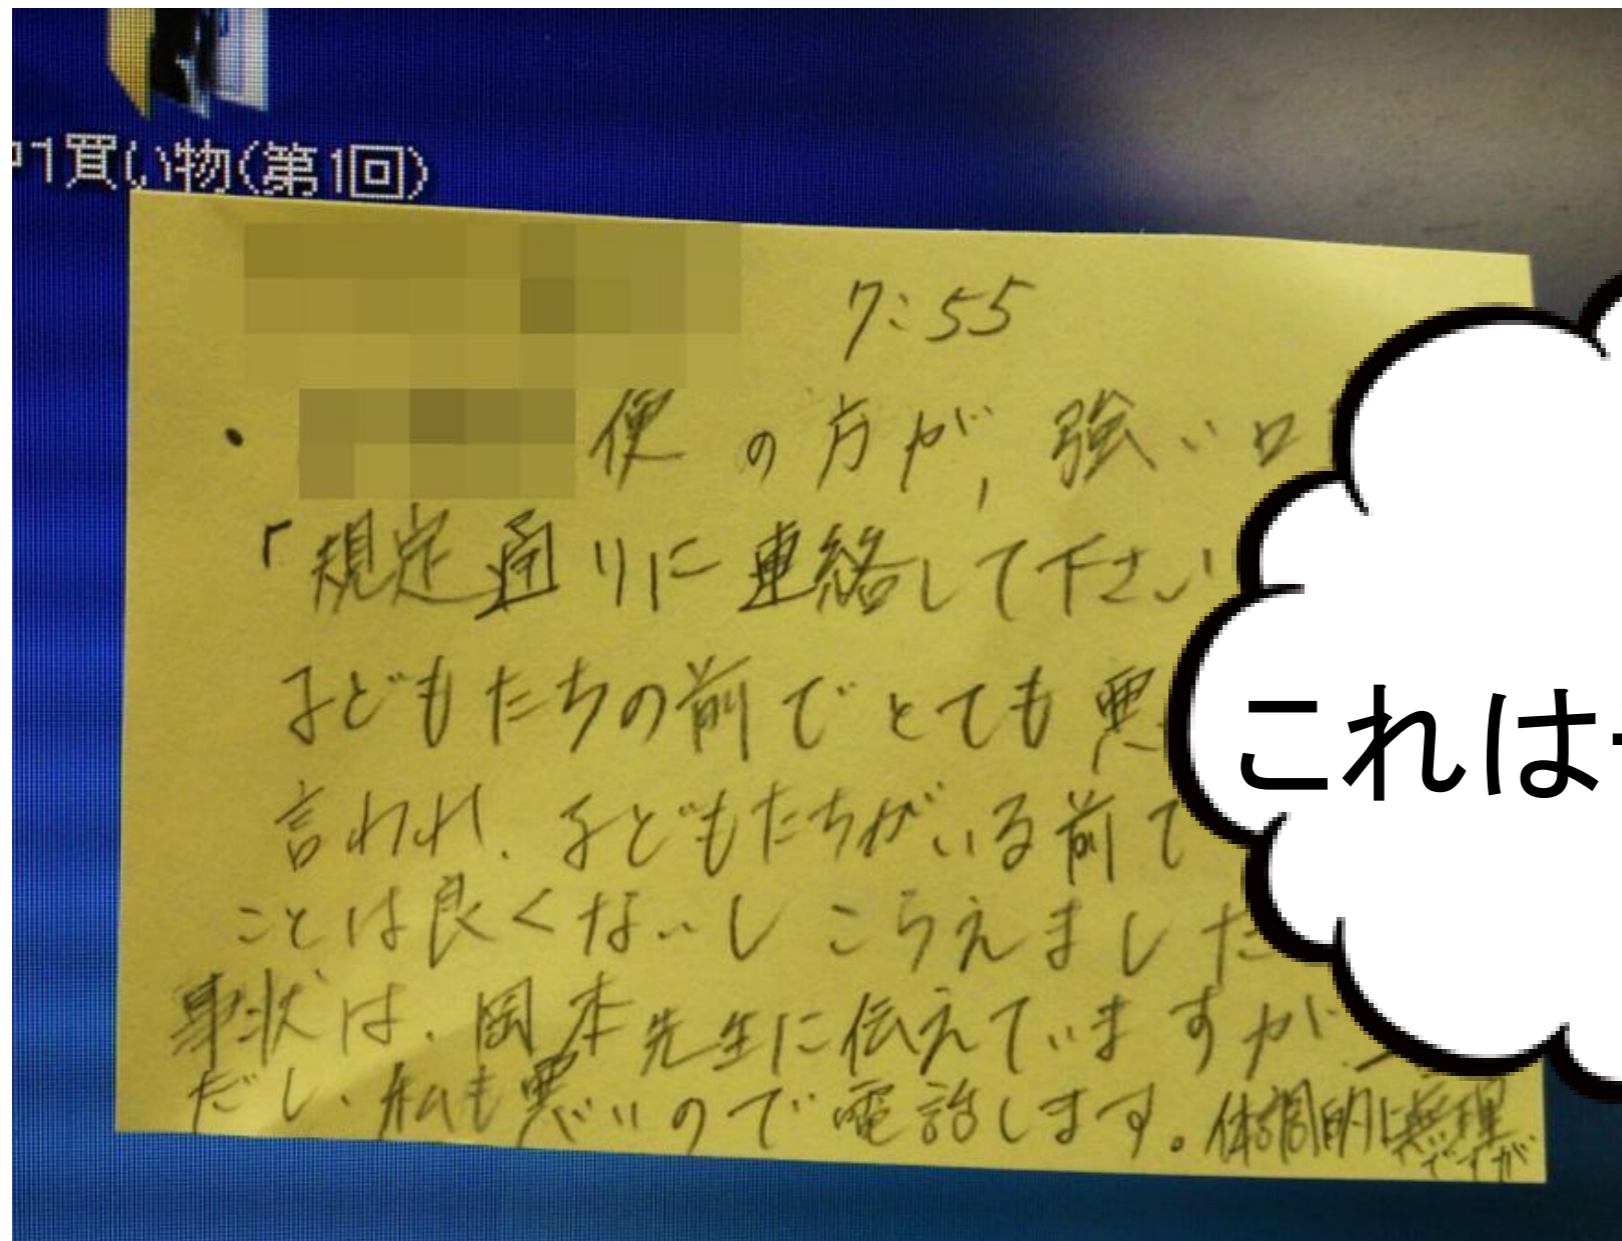 1買い物(第1回)
7:55
・ 便の方が、強い口
「規定通りに連絡して下さい
子どもたちの前でとても悪
言われ、子どもたちがいる前で
ことは良くないしこらえました
これは
事状は、岡本先生に伝えていますが、
だし、私も悪いので電話します。体調的に無理
ですが